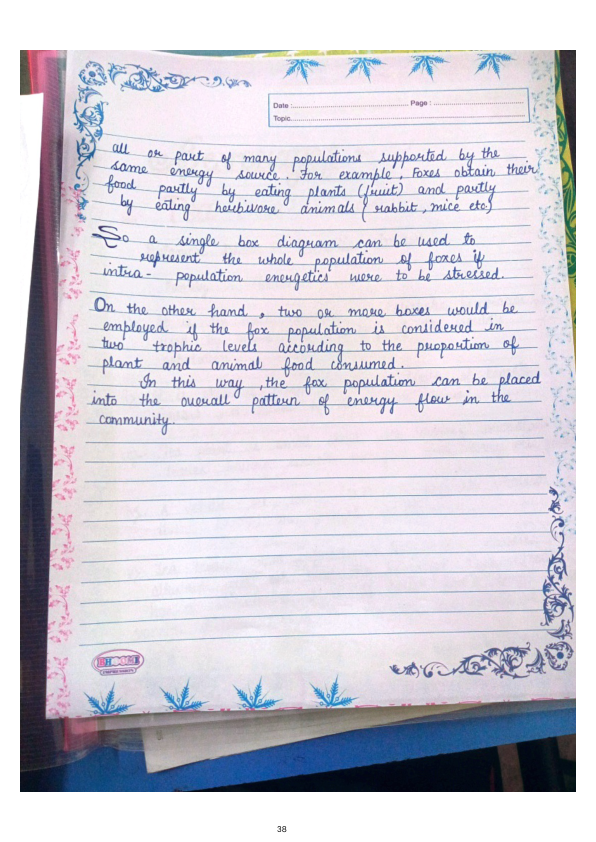 Date : Page :
Topic
all or part of many populations supported by the
same energy source. For example, Foxes obtain their
food partly by eating plants (fruit) and partly
by eating herbivore animals ( rabbit, mice etc.)
So a single box diagram can be used to
represent the whole population of foxes if
intra- population energetics were to be stressed.
On the other hand, two or more boxes would be
employed if the fox population is considered in
two trophic levels according to the proportion of
plant and animal food consumed.
In this way, the fox population can be placed
into the overall pattern of energy flow in the
community.
38